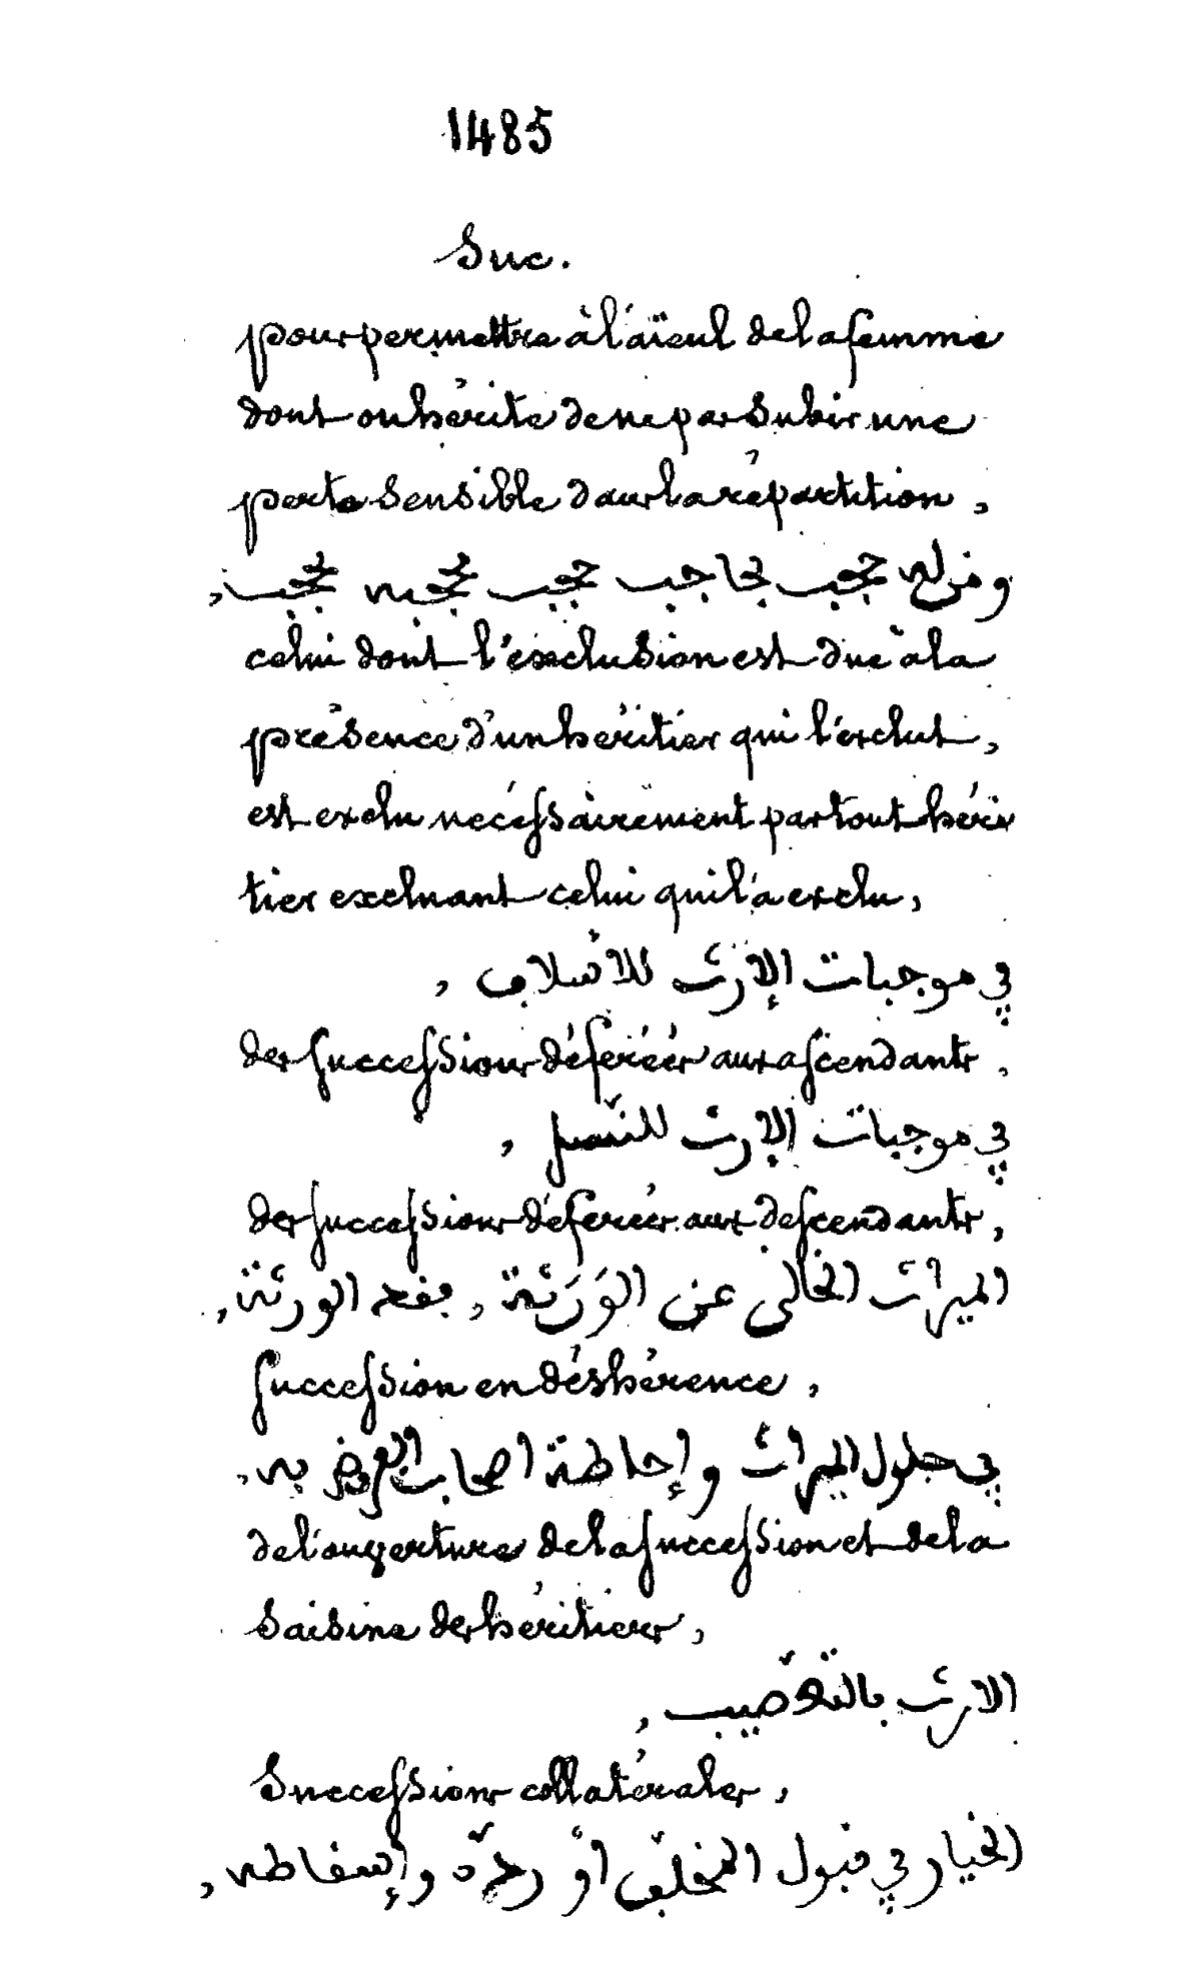 1485
Suc.
pour permettre à l'aïeul de la femme
dont on hérite de ne pas subir une
perte sensible dans la répartition,
حجب بحاجب حجب بحجبه بحجب,
celui dont l'exclusion est due à la
présence d'un héritier qui l'exclut,
est exclu nécessairement par tout héri
tier excluant celui qui l'a exclu,
في موجبات الإرث للأسلاف,
des successions déférées aux ascendants,
في موجبات الإرث للنسل,
des successions déférées aux descendants,
الميراث الخالى عن الوَرَثة, بفقد الورثة,
succession en déshérence,
في حلول الميراث وإحاطة اصحاب الفروض به,
de l'ouverture de la succession et de la
saisine des héritiers,
الارث بالتعصيب,
Successions collatérales,
الخيار في قبول المخلّف أو ردّه وإسقاطه,